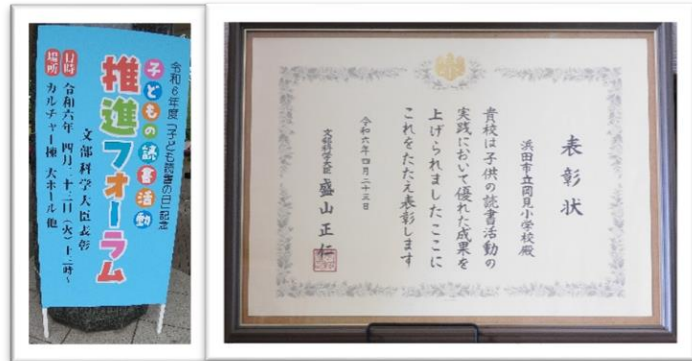 令和6年度「子ども読書の日」記念
子どもの読書活動
推進フォーラム
文部科学大臣表彰
日時 令和六年 四月二十三日(火)十三時~
場所 カルチャー棟 大ホール 他
表彰状
浜田市立岡見小学校殿
貴校は子供の読書活動の
実践において優れた成果を
上げられましたここに
これをたたえ表彰します
令和六年四月二十三日
文部科学大臣 盛山正仁